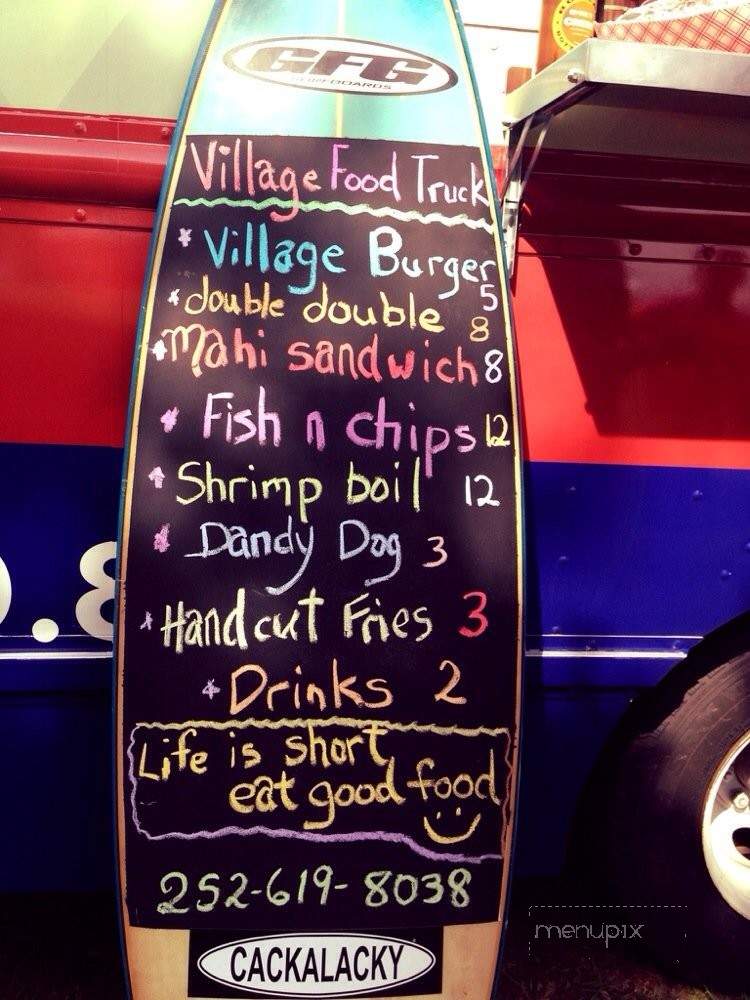 GFG
SURFBOARDS
Village Food Truck
* Village Burger 5
* double double 8
* Mahi sandwich 8
* Fish n chips 12
* Shrimp boil 12
* Dandy Dog 3
* Hand cut Fries 3
* Drinks 2
Life is short
eat good food
252-619-8038
CACKALACKY
0.8
menupix